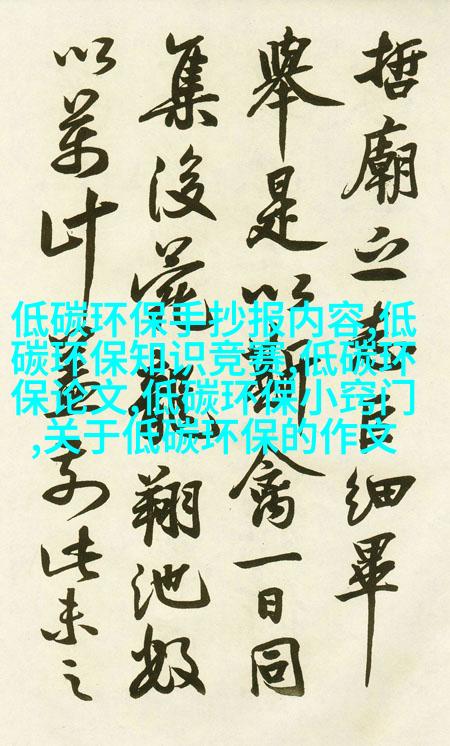 哲廟之細畢
舉是以禽一日同
集後苑翔池
以萬計前此未之
低碳环保手抄报内容,低
碳环保知识竞赛,低碳环
保论文,低碳环保小窍门
,关于低碳环保的作文